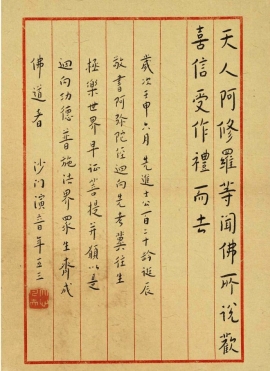 天人阿修羅等聞佛所說歡
喜信受作禮而去
歲次壬申六月先進士公百二十齡誕辰
敬書阿彌陀經迴向先考冀往生
極樂世界早証菩提并願以是
迴向功德普施法界眾生齊成
佛道者 沙門演音年五三